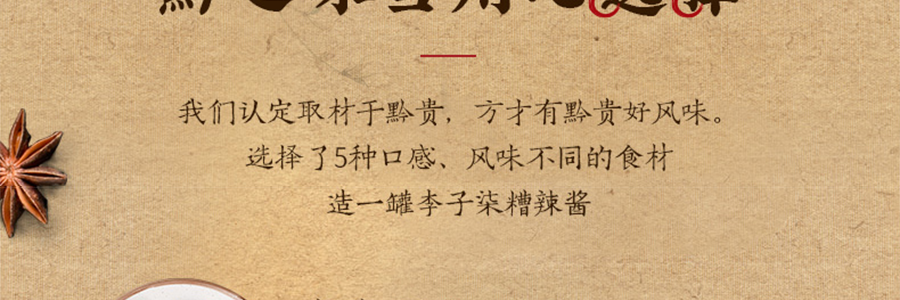 我们认定取材于黔贵，方才有黔贵好风味。
选择了5种口感、风味不同的食材
造一罐李子柒糟辣酱